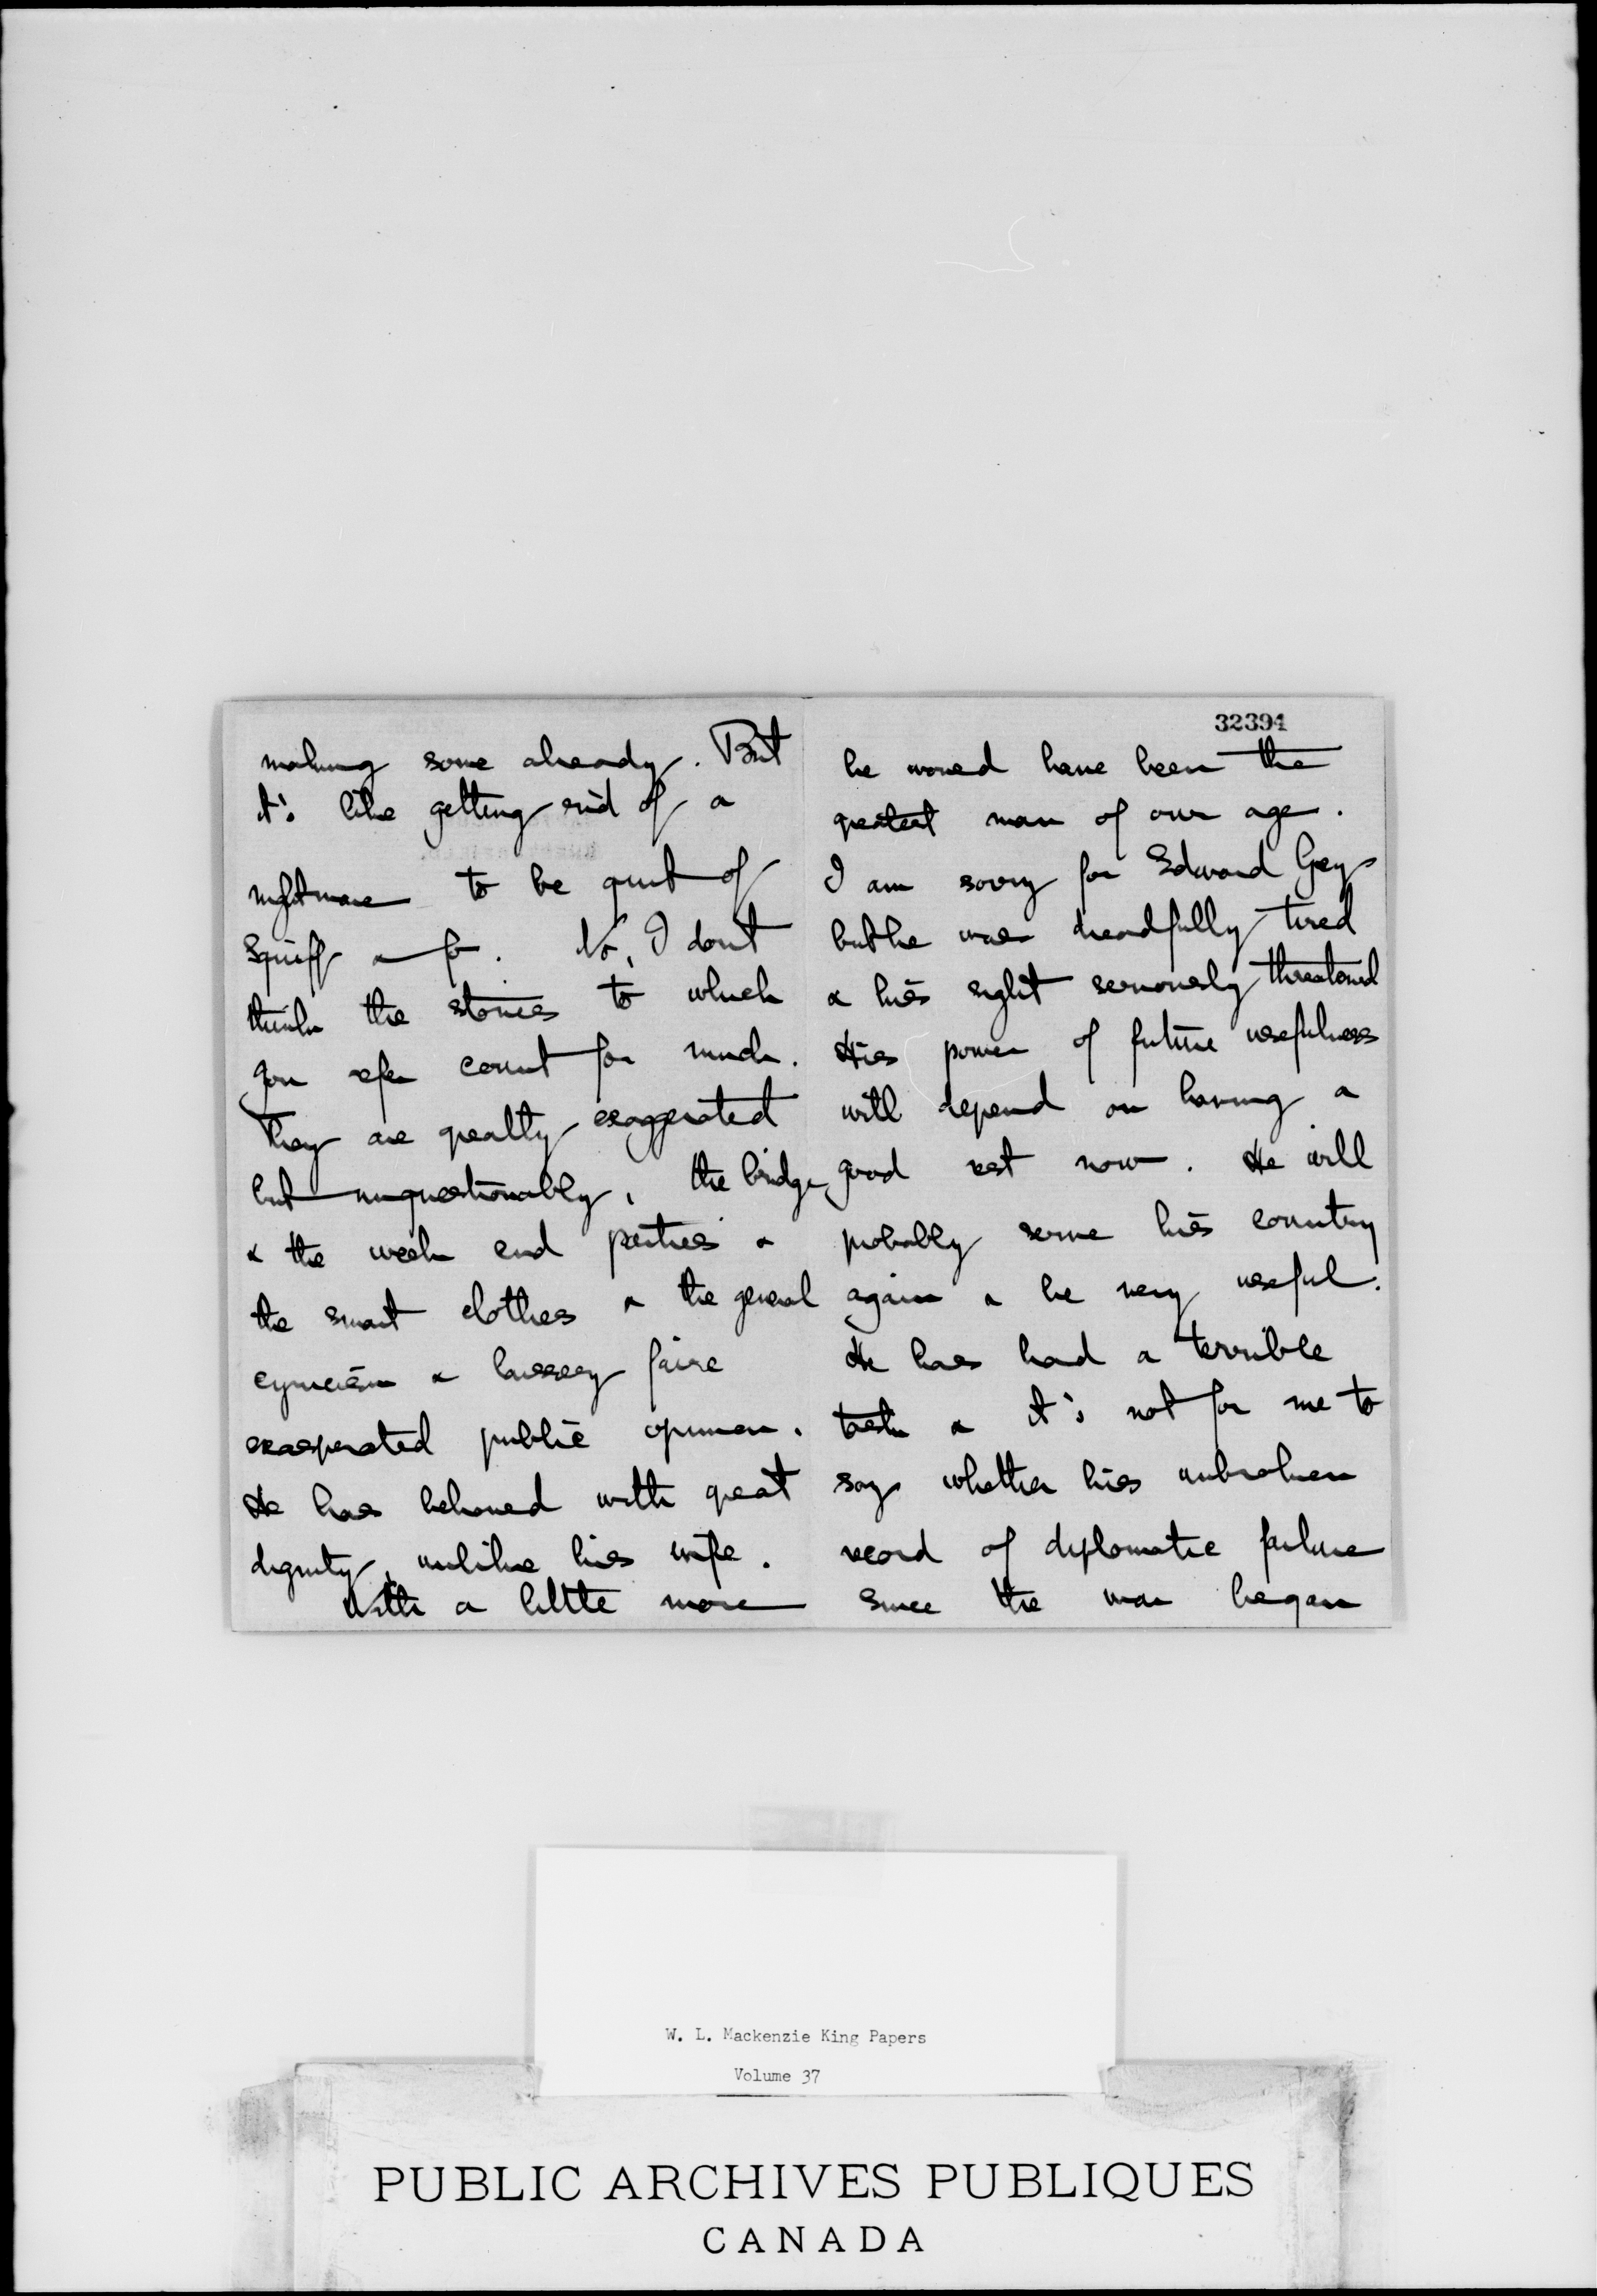 making some already. But
it's like getting rid of a
nightmare to be quit of
Squiff & Co. No, I don't
think the stories to which
you refer count for much.
They are greatly exaggerated
but unquestionably, the bridge
& the week end parties &
the smart clothes & the general
cynicism & laissez faire
exasperated public opinion.
He has behaved with great
dignity, unlike his wife.
With a little more
32394
he would have been the
greatest man of our age.
I am sorry for Edward Grey
but he was dreadfully tired
& his sight seriously threatened
His power of future usefulness
will depend on having a
good rest now. He will
probably serve his country
again & be very useful.
He has had a terrible
task & it's not for me to
say whether his unbroken
record of diplomatic failure
since the war began
W. L. Mackenzie King Papers
Volume 37
PUBLIC ARCHIVES PUBLIQUES
CANADA